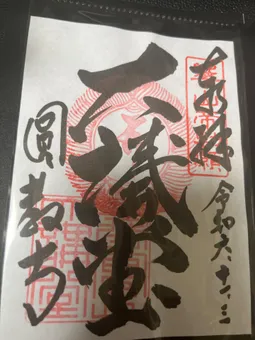 奉拝
令和六.十一.三
大講堂
圓教寺